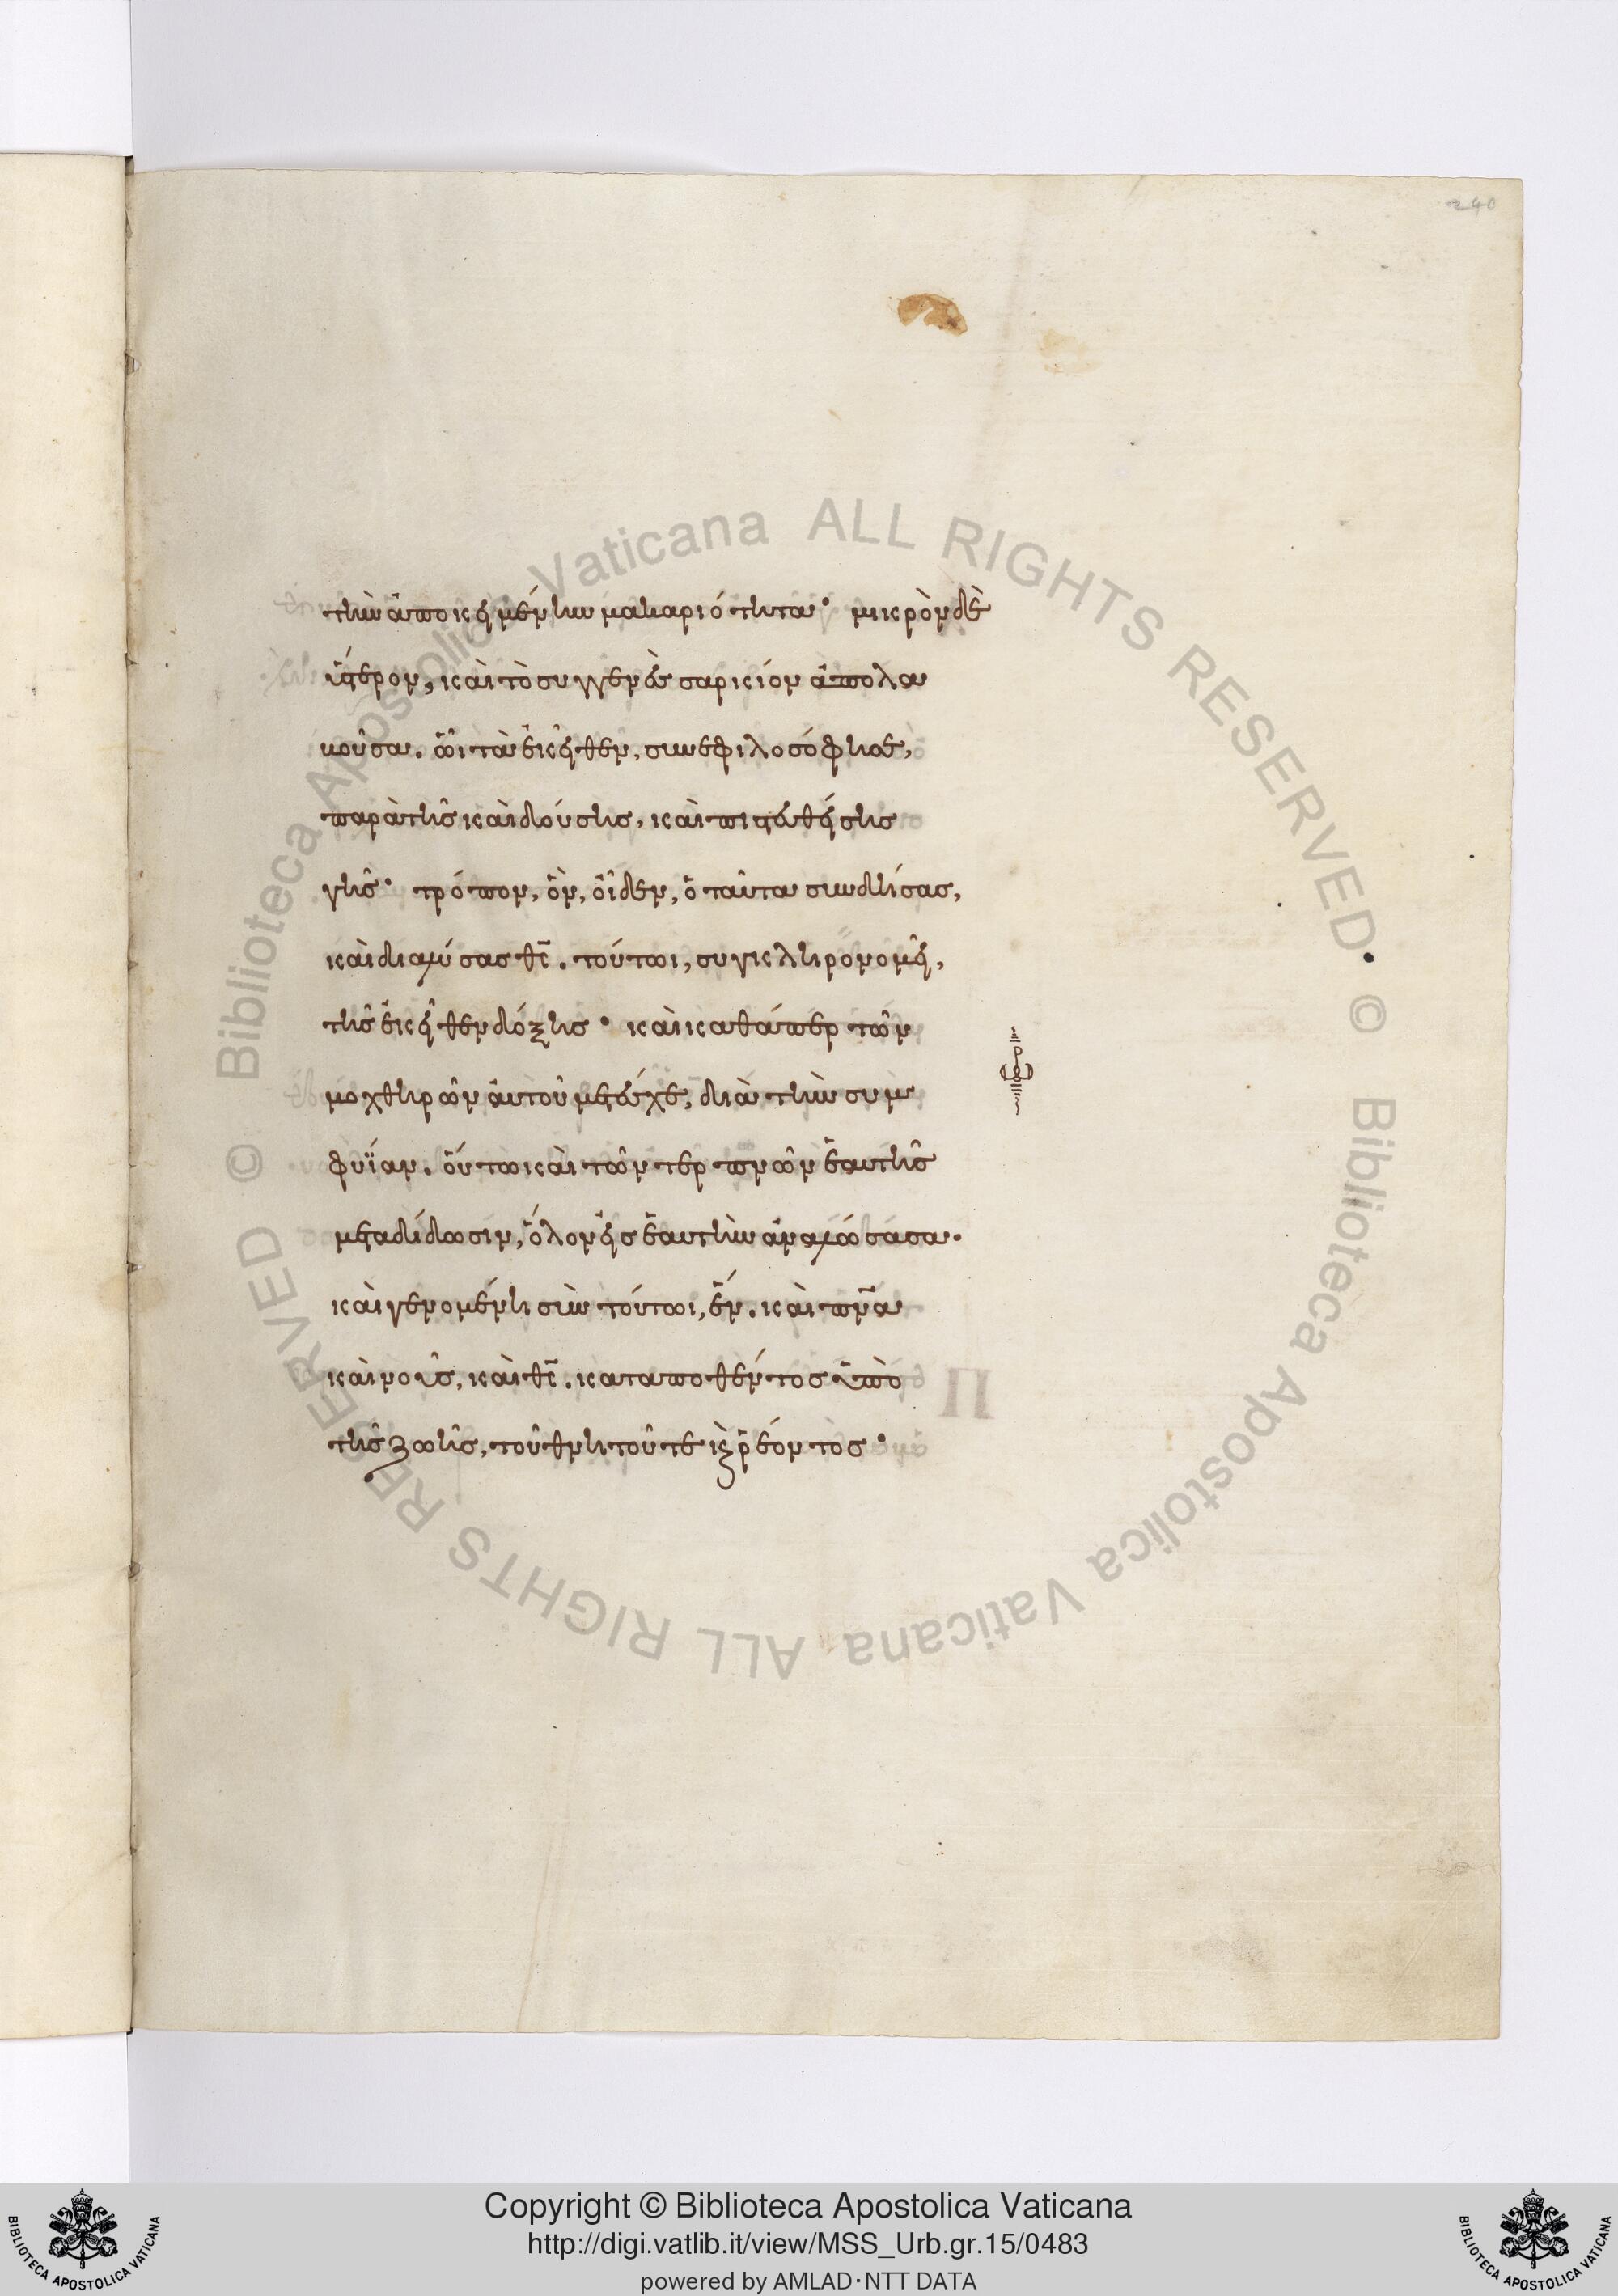 240
τὴν ἀποκειμένην μακαριότητα· μικρὸν δὲ
ὕστερον, καὶ τὸ συγγενὲς σαρκίον ἀπολα
βοῦσα. ὧι τὰ ἐκεῖθεν, συνεφιλοσόφησε,
παρὰ τῆς καὶ δούσης, καὶ πιστευθείσης
γῆς· τρόπον, ὃν, οἶδεν, ὁ ταῦτα συνδήσας,
καὶ διαλύσας θς̄. τούτωι, συγκληρονομεῖ,
τῆς ἐκεῖθεν δόξης· καὶ καθάπερ τῶν
μοχθηρῶν αὐτοῦ μετέσχε, διὰ τὴν συμ
φυΐαν. οὕτω καὶ τῶν τερπνῶν ἑαυτῆς
μεταδίδωσιν, ὅλον εἰς ἑαυτὴν ἀναλώσασα.
καὶ γενομένη σὺν τούτωι, ἕν. καὶ πνᾶ
καὶ νοῦς, καὶ θς̄. καταποθέντος ὑπὸ
τῆς ζωῆς, τοῦ θνητοῦ τε κζ ῥέοντος·
Copyright © Biblioteca Apostolica Vaticana
http://digi.vatlib.it/view/MSS_Urb.gr.15/0483
powered by AMLAD·NTT DATA
BIBLIOTECA APOSTOLICA VATICANA
BIBLIOTECA APOSTOLICA VATICANA
© Biblioteca Apostolica Vaticana ALL RIGHTS RESERVED. © Biblioteca Apostolica Vaticana ALL RIGHTS RESERVED